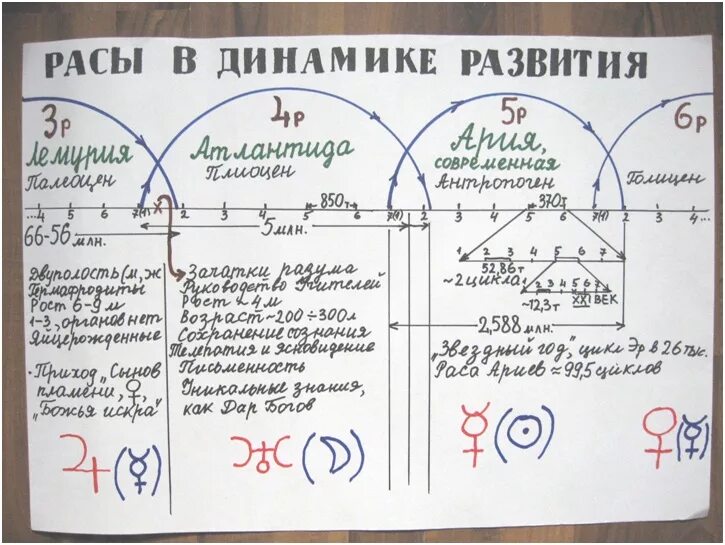 РАСЫ В ДИНАМИКЕ РАЗВИТИЯ
3р
Лемурия
Палеоцен
4р
Атлантида
Плиоцен
5р
Ария,
современная
Антропоген
6р
Голицен
...4 5 6 7(1) X 2 3 4 5 850т 6 7(1) 2 3 4 5 370т 6 7(1) 2 3 4...
66-56 млн.
5 млн.
1 2 3 4 5 6 7
52,86т
~2 цикла
1 2 3 4 5 6 7
~12,3т XXI ВЕК
2,588 млн.
Двуполость (м, ж
Гермафродиты
Рост 6-9 м
1-3, органов нет
Яйцерожденные
·Приход „Сынов
пламени, ♀,
„Божья искра"
Зачатки разума
Руководство Учителей
Рост ~ 4 м
Возраст ~200÷300л
Сохранение сознания
Телепатия и ясновидение
Письменность
Уникальные знания,
как Дар Богов
„Звездный год", цикл Эр в 26 тыс.
Раса Ариев ≈ 99,5 циклов
♃ (☿)
♅ (☽)
☿ (☉)
♀ (☿)